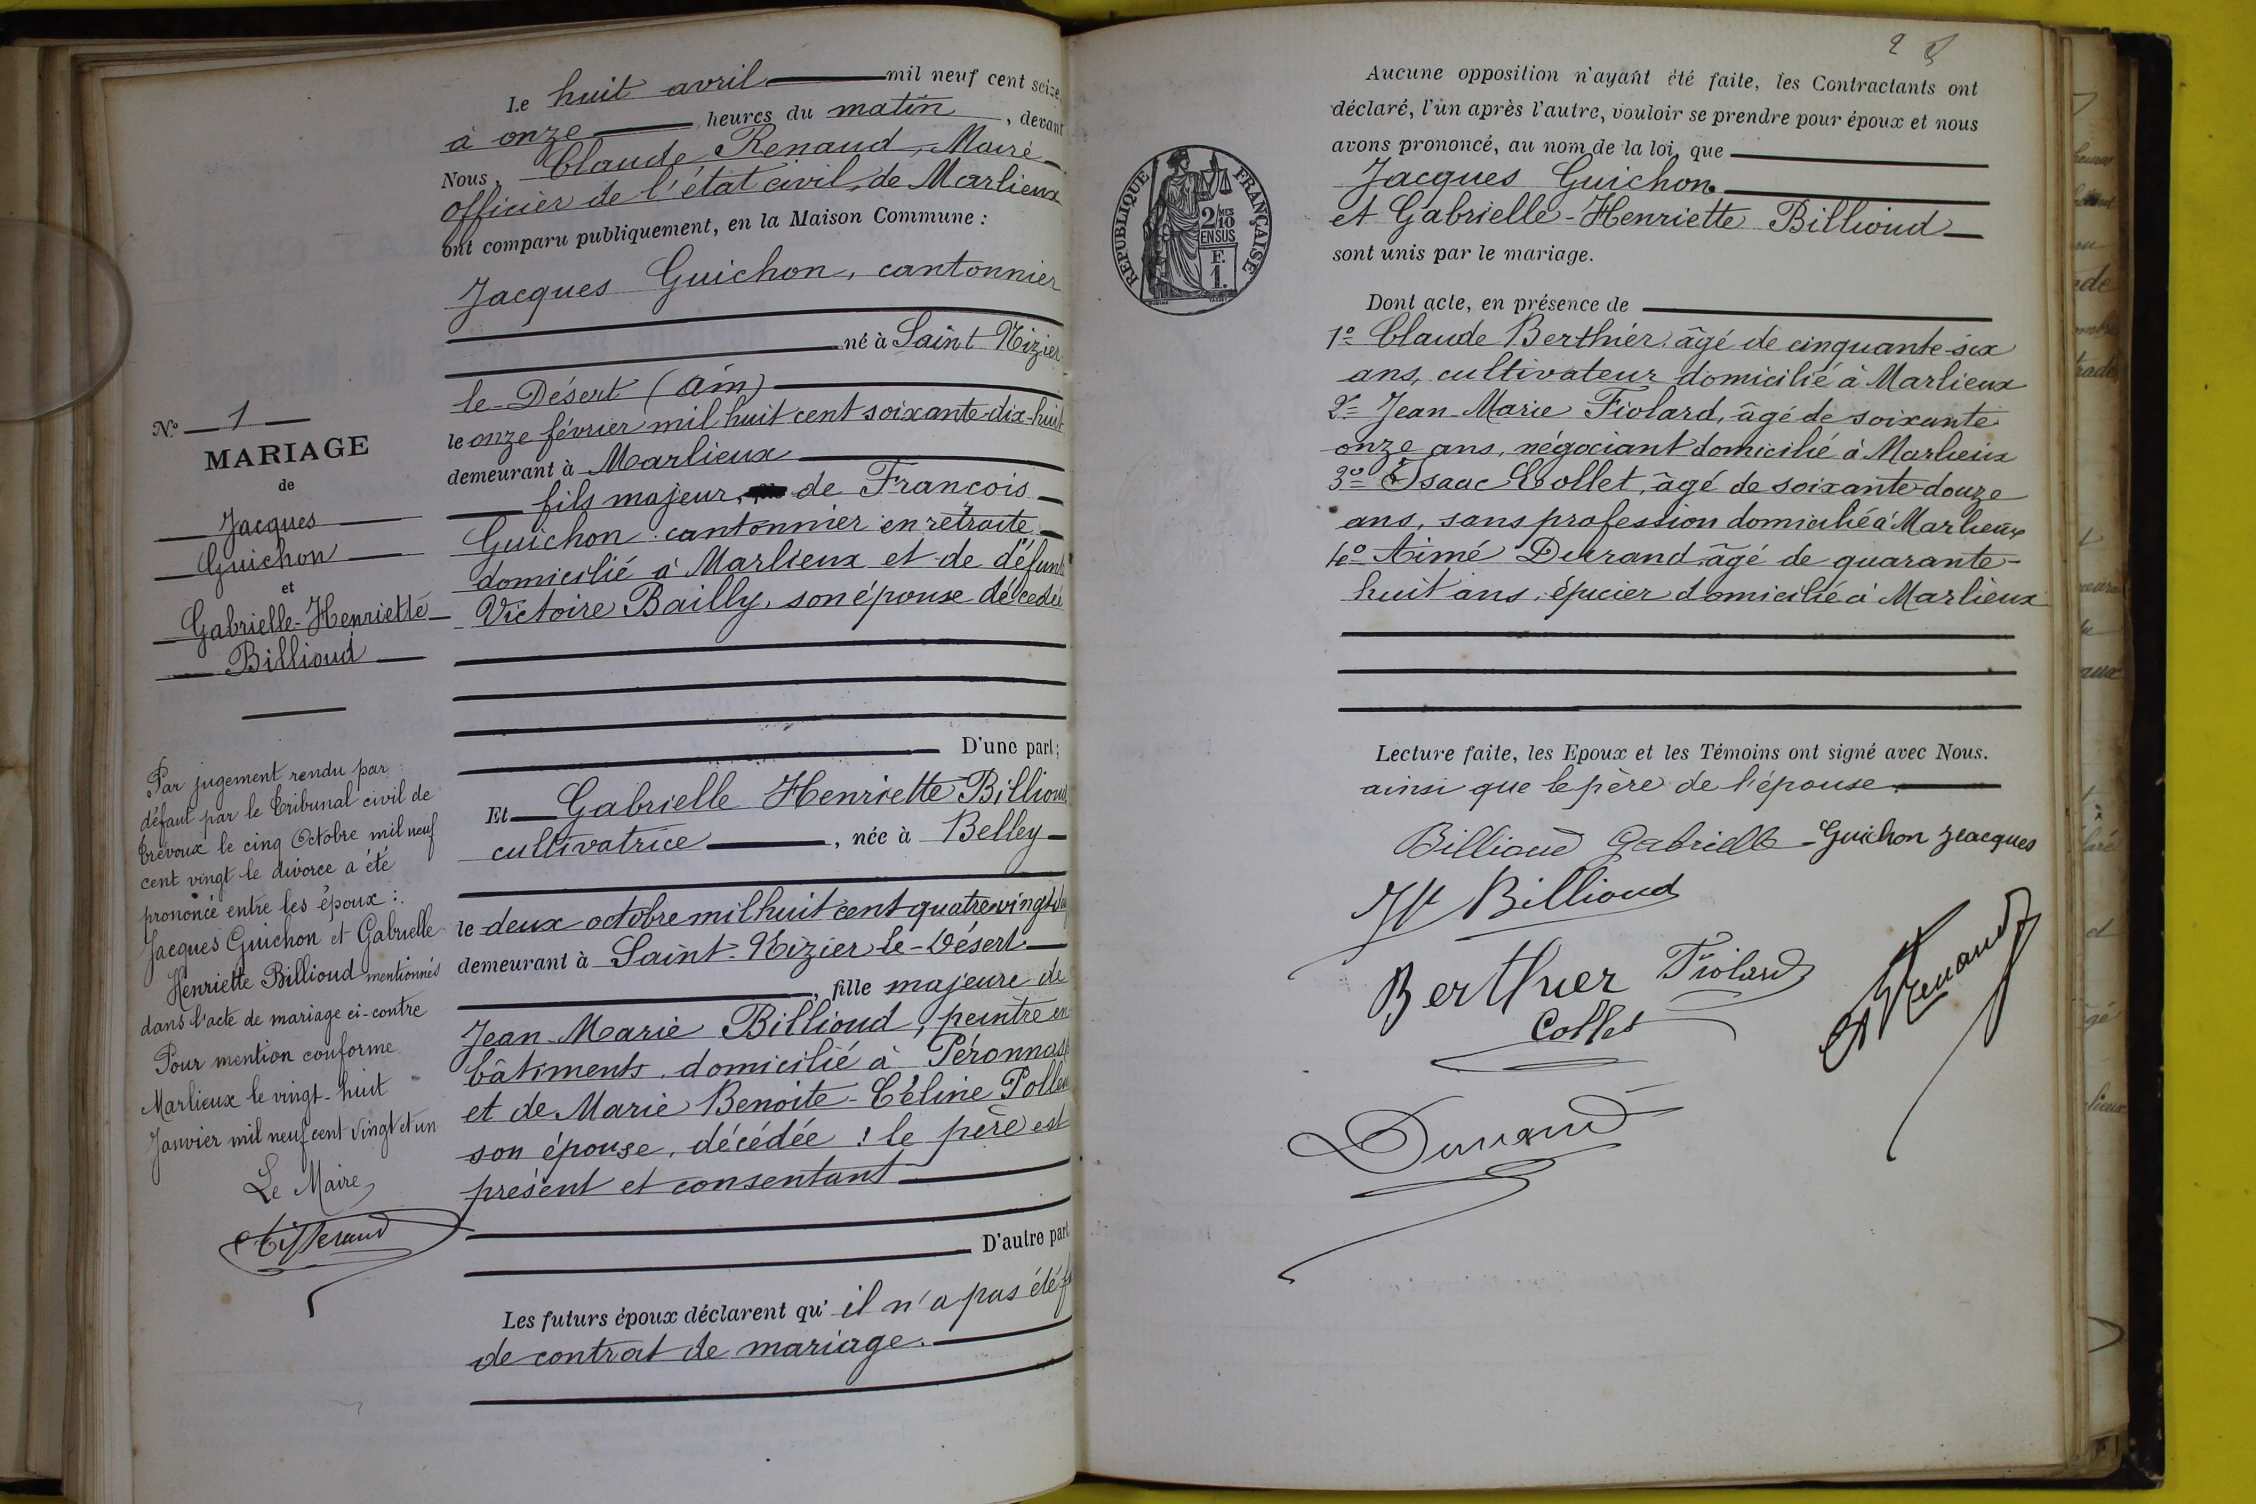 Le huit avril mil neuf cent seize
à onze heures du matin, devant
Nous, Claude Renaud, Maire
officier de l'état civil de Marlieux
ont comparu publiquement, en la Maison Commune :
Jacques Guichon, cantonnier
né à Saint Nizier
le-Désert (Ain)
le onze février mil huit cent soixante-dix-huit
demeurant à Marlieux
fils majeur, de François
Guichon cantonnier en retraite
domicilié à Marlieux et de défunte
Victoire Bailly, son épouse décédée
D'une part ;
Et Gabrielle Henriette Billioud
cultivatrice, née à Belley
le deux octobre mil huit cent quatre vingt
demeurant à Saint-Nizier-le-Désert
, fille majeure de
Jean-Marie Billioud, peintre en
bâtiments, domicilié à Péronnas
et de Marie Benoite-Céline
son épouse, décédée ; le père est
présent et consentant
D'autre part
Les futurs époux déclarent qu'il n'a pas été
de contrat de mariage.
N° 1
MARIAGE
de
Jacques
Guichon
et
Gabrielle-Henriette
Billioud
Par jugement rendu par
défaut par le Tribunal civil de
Trévoux le cinq Octobre mil neuf
cent vingt le divorce a été
prononcé entre les époux :
Jacques Guichon et Gabrielle
Henriette Billioud mentionnés
dans l'acte de mariage ci-contre
Pour mention conforme
Marlieux le vingt-huit
Janvier mil neuf cent vingt et un
Le Maire
Tisserand
2
RÉPUBLIQUE FRANÇAISE
2/10 MES
EN SUS
F.
1.
Aucune opposition n'ayant été faite, les Contractants ont
déclaré, l'un après l'autre, vouloir se prendre pour époux et nous
avons prononcé, au nom de la loi, que
Jacques Guichon
et Gabrielle-Henriette Billioud
sont unis par le mariage.
Dont acte, en présence de
1° Claude Berthier âgé de cinquante-six
ans, cultivateur domicilié à Marlieux
2° Jean-Marie Fiolard, âgé de soixante
onze ans, négociant domicilié à Marlieux
3° Isaac Collet, âgé de soixante-douze
ans, sans profession domicilié à Marlieux
4° Aimé Durand âgé de quarante-
huit ans, épicier domicilié à Marlieux
Lecture faite, les Epoux et les Témoins ont signé avec Nous.
ainsi que le père de l'épouse
Billioud Gabrielle Guichon Jacques
Billioud
Berthier Fiolard
Collet
Renaud
Durand